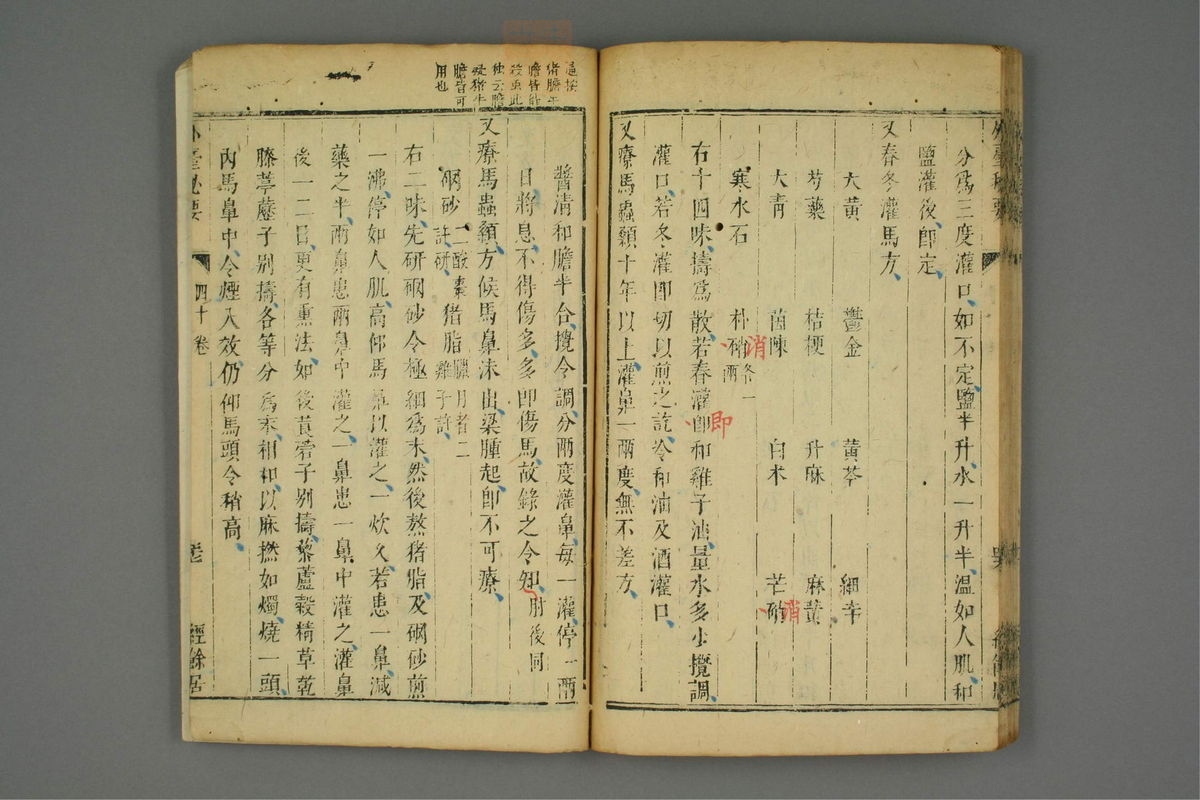 分為三度灌口如不定鹽半升水一升半温如人肌和
鹽灌後即定
又春冬灌馬方
大黃 鬱金 黃芩 細辛
芍藥 桔梗 升麻 麻黃
大青 茵陳 白术 芒硝
消
寒水石 朴硝各一兩
消
右十四味擣為散若春灌即和雞子油量水多少攪調
即
灌口若冬灌即切以煎之訖冷和油及酒灌口
又療馬蟲顙十年以上灌鼻一兩度無不差方
醬清和膽半合攪令調分兩度灌鼻每一灌停一兩
日將息不得傷多多即傷馬故錄之令知肘後同
又療馬蟲顙方候馬鼻沫出梁腫起即不可療
硇砂二酸棗許研 猪脂臘月者二雞子許
右二味先研硇砂令極細為末然後熬猪脂及硇砂煎
一沸停如人肌高仰馬鼻以灌之一炊久若患一鼻減
藥之半兩鼻患兩鼻中灌之一鼻患一鼻中灌之灌鼻
後一二日更有熏法如後莨菪子別擣藜蘆穀精草乾
漆葶藶子別擣各等分為末相和以麻撚如燭燒一頭
內馬鼻中令煙入效仍仰馬頭令稍高
外臺秘要
四十卷
經餘居